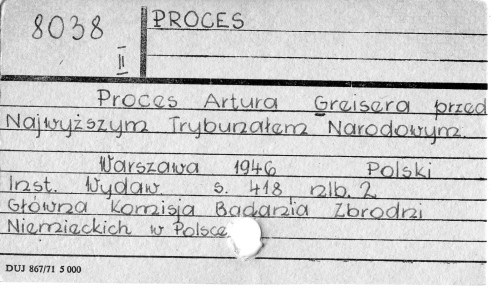 8038
II
PROCES
Proces Artura Greisera przed
Najwyższym Trybunałem Narodowym.
Warszawa 1946 Polski
Inst. Wydaw s. 418 nlb. 2
Główna Komisja Badania Zbrodni
Niemieckich w Polsce
DUJ 867/71 5 000